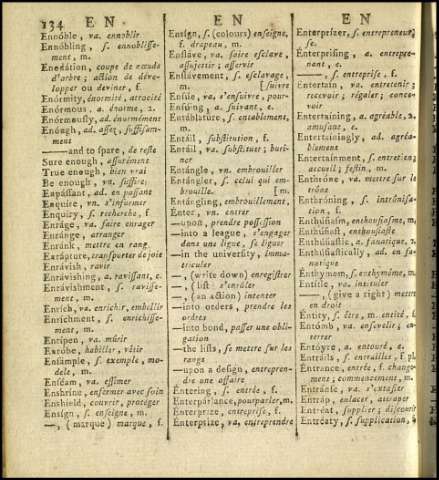 134 EN
Ennóble, va. ennoblir
Ennóbling, ſ. ennobliſſe-
ment, m.
Enodátion, coupe de nœuds
d'arbre; action de déve-
lopper ou deviner, f.
Enórmity, énormité, atrocité
Enórmous, a. énorme, 2.
Enórmouſly, ad. énormément
Enóugh, ad. aſſez, ſuffiſam-
ment
——and to ſpare, de reſte
Sure enough, aſſurément
True enough, bien vrai
Be enough, va. ſuffire,
Enpáſſant, ad. en paſſant
Enquíre, vn. s'informer
Enquiry, ſ. recherche, f.
Enráge, va. faire enrager
Enránge, arranger
Enránk, mettre en rang
Enrápture, tranſporter de joie
Enrávish, ravir
Enrávishing, a. raviſſant, e.
Enrávishment, ſ. raviſſe-
ment, m.
Enrích, va. enrichir, embellir
Enríchment, ſ. enrichiſſe-
ment, m.
Enrípen, va. mûrir
Enróbe, habiller, vêtir
Enſámple, ſ. exemple, mo-
dele, m.
Enſéam, va. eſſimer
Enshríne, enfermer avec ſoin
Enshíeld, couvrir, protéger
Enſign, ſ. enſeigne, m.
—, (marque) marque, f.
EN
Enſign, ſ. (colours) enſeigne,
f. drapeau, m.
Enſláve, va. faire eſclave,
aſſujettir; aſſervir
Enſlávement, ſ. eſclavage,
m. [ſuivre
Enſúe, va. s'enſuivre, pour-
Enſúing, a. ſuivant, e.
Entáblature, ſ. entablement,
m.
Entáil, ſubſtitution, f.
Entáil, va. ſubſtituer; buri-
ner
Entángle, vn. embrouiller
Entángler, ſ. celui qui em-
brouille. [m.
Entángling, embrouillement,
Enter, vn. entrer
—upon, prendre poſſeſſion
—into a league, s'engager
dans une ligue, ſe liguer
—in the univerſity, imma-
triculer
—, (write down) enregiſtrer
—, (liſt) s'enrôler
—, (an action) intenter
—into orders, prendre les
ordres
—into bond, paſſer une obli-
gation
—the liſts, ſe mettre ſur les
rangs
—upon a deſign, entrepren-
dre une affaire
Éntering, ſ. entrée, f.
Enterpárlance, pourparler, m.
Enterprize, entrepriſe, f.
Enterprize, va. entreprendre
EN
Enterprizer, ſ. entrepreneur,
ſe.
Enterpriſing, a. entrepre-
nant, e.
——, ſ. entrepriſe, f.
Entertaín, va. entretenir;
recevoir; régaler; conce-
voir
Entertaining, a. agréable, 2.
amuſant, e.
Entertainingly, ad. agréa-
blement
Entertainment, ſ. entretien;
accueil; feſtin, m.
Enthróne, va. mettre ſur le
trône
Enthróning, ſ. intrôniſa-
tion, f.
Enthúſiaſm, enthouſiaſme, m.
Enthúſiaſt, enthouſiaſte
Enthúſiáſtic, a. fanatique, 2.
Enthúſiáſtically, ad. en fa-
natique
Enthymem, ſ. enthymême, m.
Entítle, va. intituler
——, (give a right) mettre
en droit
Éntity, ſ. être, m. entité, f.
Entómb, va. enſevelir; en-
terrer
Entóyre, a. entouré, e.
Éntrails, ſ. entrailles, f. pl.
Éntrance, entrée, f. change-
ment; commencement, m.
Entránce, va. s'extaſier
Entráp, enlacer, attraper
Entréat, ſupplier; diſcourir
Entréaty, ſ. ſupplication, f.